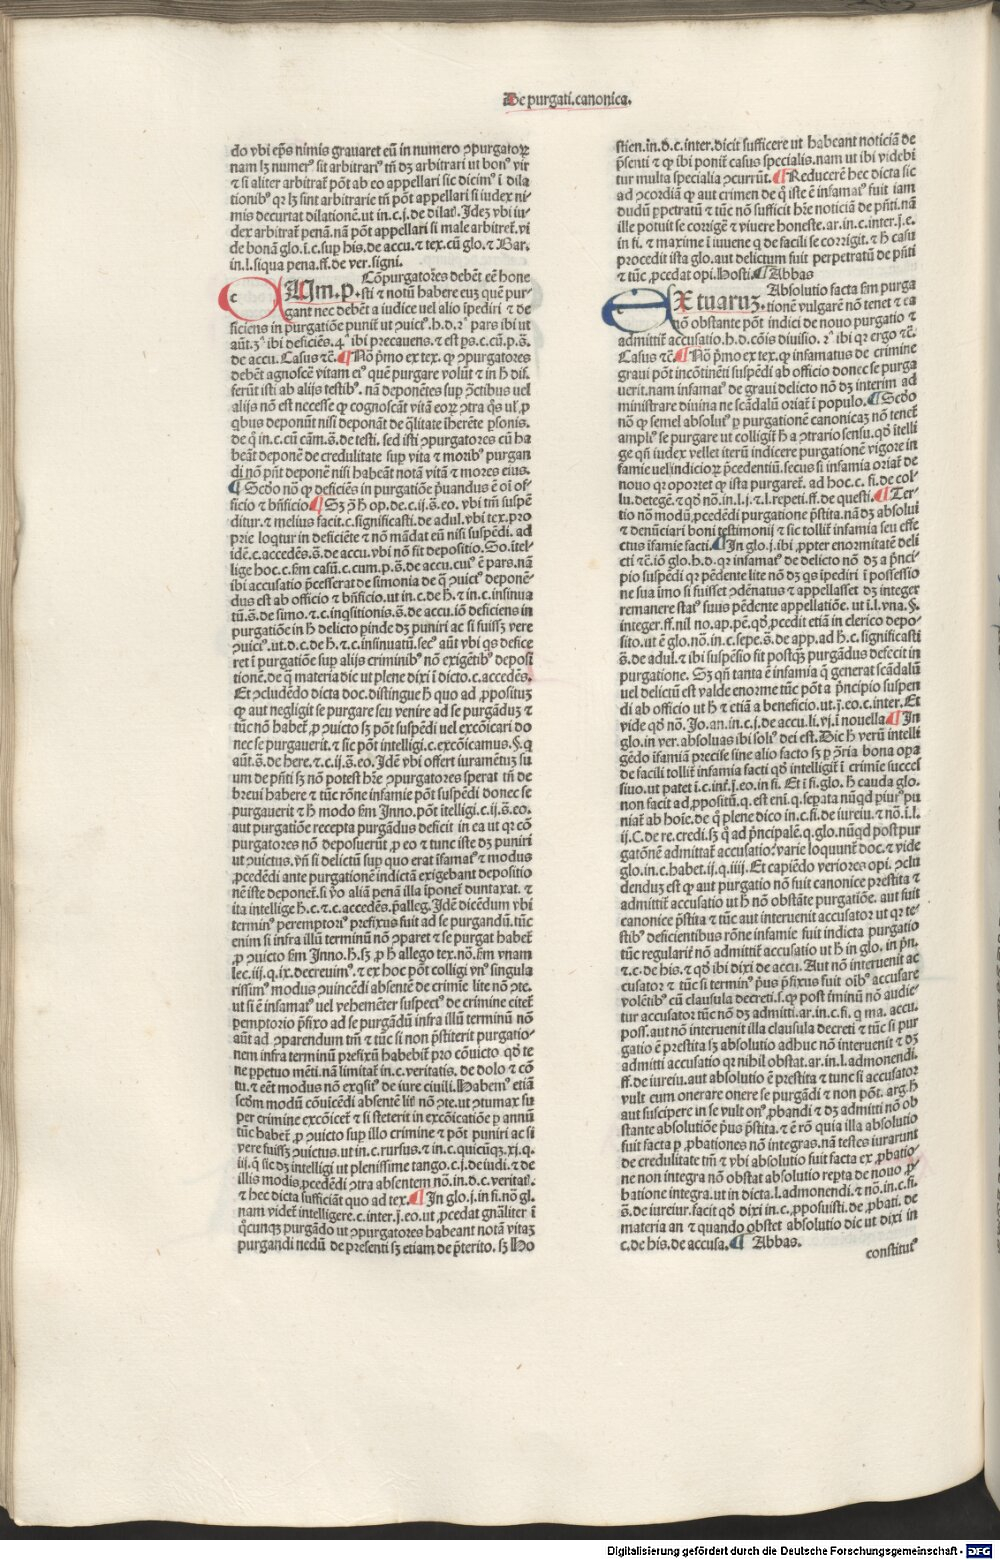 De purgati.canonica.
do vbi ep̄s nimis grauaret eū in numero ꝯpurgatoꝝ
nam lꝫ numerꝰ sit arbitrariꝰ tn̄ dꝫ arbitrari ut bonꝰ vir
⁊ si aliter arbitrat̄ pōt ab eo appellari sic dicimꝰ ī dila
tionibꝰ qr lꝫ sint arbitrarie tn̄ pōt appellari si iudex ni⸗
mis decurtat dilationē.ut in.c.j.de dilat̄. Idez vbi iu⸗
dex arbitrat̄ penā.nā pōt appellari si male arbitret̄.vi
de bonā glo.ī.c.sup his.de accu.⁊ tex.cū glo.⁊ Bar.
in.l.siqua pena.ff.de ver.signi.
Cōpurgatores debēt eē hone
c Um.p. sti ⁊ notū habere euꝫ quē pur⸗
gant nec debēt a iudice uel alio īpediri ⁊ de
ficiens in purgatiōe punit̄ ut ꝯuictꝰ.h.d.2ᵃ pars ibi ut
aūt.3ᵃ ibi deficiēs.4ᵃ ibi precauens.⁊ est ps.c.cū.p.s̄.
de accu. Casus ⁊c̄.¶ Nō pͥmo ex tex. ꝙ ꝯpurgatores
debēt agnoscē vitam eiꝰ quē purgare volūt ⁊ in h̄ dif.
ferūt isti ab alijs testibꝰ. nā deponētes sup ꝯctibus uel
alijs nō est necesse ꝙ cognoscāt vitā eoꝝ ꝯtra q̄s ul̓ ꝓ
qbus deponūt nisi deponāt de q̄litate īherēte ꝑsonis.
de q̄ in.c.cū cām.s̄.de testi. sed isti ꝯpurgatores cū ha
beāt deponē de credulitate sup vita ⁊ moribꝰ purgan
di nō pn̄t deponē nisi habeāt notā vitā ⁊ mores eius.
¶ Scd̄o nō ꝙ deficiēs in purgatiōe p̄uandus ē oī of⸗
ficio ⁊ bn̄ficio ¶ Sꝫ ꝯ̄ h̄ op.de.c.ij.s̄.eo.vbi tm̄ suspē
ditur.⁊ melius facit.c.significasti.de adul.vbi tex.pro
prie loqtur in deficiēte ⁊ nō mādat eū nisi suspēdi. ad
idē.c.accedēs.s̄.de accu.vbi nō fit depositio. So.itel⸗
lige hoc.c.fm casū.c.cum.p.s̄.de accu.cuiꝰ ē pars.nā
ibi accusatio p̄cesserat de simonia de q̄ ꝯuictꝰ deponē⸗
dus est ab officio ⁊ bn̄ficio.ut in.c.de h̄.⁊ in.c.insinua
tū.s̄.de simo.⁊.c.inqsitionis.s̄.de accu.iō deficiens in
purgatiōe in h̄ delicto ꝑinde dꝫ puniri ac si fuissꝫ vere
ꝯuictꝰ.ut.d.c.de h̄.⁊.c.insinuatū.secꝰ aūt vbi qs defice
ret ī purgatiōe sup alijs criminibꝰ nō exigētibꝰ deposi
tionē.de q̄ materia dic ut plene dixi ī dicto.c.accedēs.
Et ꝯcludēdo dicta doc.distingue h̄ quo ad ꝓpositum
ꝙ aut negligit se purgare seu venire ad se purgādūꝫ ⁊
tūc nō habet̄ ꝓ ꝯuicto sꝫ pōt suspēdi uel excōicari do
nec se purgauerit.⁊ sic pōt intelligi.c.excōicamus.§.q
aūt.s̄.de here.⁊.c.ij.s̄.eo. Idē vbi offert iuramētuꝫ su
um de pn̄ti sꝫ nō potest hr̄e ꝯpurgatores sperat tn̄ de
breui habere ⁊ tūc rōne infamie pōt suspēdi donec se
purgauerit ⁊ h̄ modo fm Inno.pōt itelligi.c.ij.s̄.eo.
aut purgatiōe recepta purgādus deficit in ea ut qr cō
purgatores nō deposuerūt ꝓ eo ⁊ tunc iste dꝫ puniri
ut ꝯuictus.vn̄ si delictū sup quo erat īfamatꝰ ⁊ modus
ꝓcedēdi ante purgationē indictā exigebant depositio
nē iste deponet̄.si v̄o aliā penā illa īponet̄ duntaxat.⁊
ita intellige h̄.c.⁊.c.accedēs.p̄alleg̓. Idē dicēdum vbi
terminꝰ peremptoriꝰ prefixus fuit ad se purgandū.tūc
enim si infra illū terminū nō ꝯparet ⁊ se purgat habet̄
ꝓ ꝯuicto fm Inno.h.sꝫ ꝓ h̄ allego tex.nō.fm vnam
lec.iij.q.ix.decreuimꝰ.⁊ ex hoc pōt colligi vnꝰ singula
rissimꝰ modus ꝯuincēdi absentē de crimīe lite nō ꝯte.
ut si ē infamatꝰ uel vehemēter suspectꝰ de crimine citet̄
pemptorio p̄fixo ad se purgādū infra illū terminū nō
aūt ad ꝯparendum tm̄ ⁊ tūc si non p̄stiterit purgatio⸗
nem infra terminū prefixū habebit̄ pro cōuicto qd̄ te
ne ꝑpetuo mēti.nā limitat̄ in.c.veritatis.de dolo ⁊ cō
tu.⁊ eēt modus nō exqsitꝰ de iure ciuili. Habemꝰ etiā
scd̄m modū cōuicēdi absentē litē nō ꝯte.ut ꝯtumax su
per crimine excōicet̄ ⁊ si steterit in excōicatiōe ꝑ annū
tūc habet̄ ꝓ ꝯuicto sup illo crimine ⁊ pōt puniri ac si
vere fuissꝫ ꝯuictus.ut in.c.rursus.⁊ in.c.quicūqꝫ.xj.q.
iij.q̄ sic dꝫ intelligi ut plenissime tango.c.j.de iudi.⁊ de
illis modis ꝓcedēdi ꝯtra absentem nō.in.d.c.veritat̄.
⁊ hec dicta sufficiāt quo ad tex.¶ In glo.j.in fi.nō gl.
nam videt̄ intelligere.c.inter.j.eo.ut ꝓcedat gn̄aliter ī
q̄cunqꝫ purgādo ut ꝯpurgatores habeant notā vitaꝫ
purgandi nedū de presenti sꝫ etiam de p̄terito.sꝫ Ho
stien.in.d.c.inter.dicit sufficere ut habeant noticiā de
p̄senti ⁊ ꝙ ibi ponit̄ casus specialis.nam ut ibi videbi
tur multa specialia ꝯcurrūt.¶ Reducerē hec dicta sic
ad ꝯcordiā ꝙ aut crimen de q̄ iste ē infamatꝰ fuit iam
dudū ꝑpetratū ⁊ tūc nō sufficit hr̄e noticiā de pn̄ti.nā
ille potuit se corrigē ⁊ viuere honeste.ar.in.c.inter.j.e.
in fi.⁊ maxime ī iuuene q de facili se corrigit.⁊ h̄ casu
procedit ista glo.aut delictum fuit perpetratū de pn̄ti
⁊ tūc ꝓcedat opi.Hosti.¶ Abbas
Absolutio facta fm purga
e Xtuaruꝫ. tionē vulgarē nō tenet ⁊ ea
nō obstante pōt indici de nouo purgatio ⁊
admittit̄ accusatio.h.d.cōis diuisio.2ᵃ ibi qr ergo ⁊c̄.
Casus ⁊c̄.¶ Nō pͥmo ex tex.ꝙ infamatus de crimine
graui pōt incōtinēti suspēdi ab officio donec se purga
uerit.nam infamatꝰ de graui delicto nō dꝫ interim ad
ministrare diuina ne scādalū oriat̄ ī populo.¶ Scd̄o
nō ꝙ semel absolutꝰ ꝑ purgationē canonicaꝫ nō tenet̄
ampliꝰ se purgare ut colligit̄ h̄ a ꝯtrario sensu.qd̄ itelli
ge qn̄ iudex vellet iterū indicere purgationē vigore in
famie uel indicioꝝ p̄cedentiū.secus si infamia oriat̄ de
nouo qr oportet ꝙ ista purgaret̄. ad hoc.c.fi.de col⸗
lu.detegē.⁊ qd̄ nō.in.l.j.⁊.l.repeti.ff.de questi.¶ Ter⸗
tio nō modū ꝓcedēdi purgatione p̄stita.nā dꝫ absolui
⁊ denūciari boni testimonij ⁊ sic tollit̄ infamia seu effe
ctus īfamie facti.¶ In glo.j.ibi ꝓpter enormitatē deli
cti ⁊c̄.iō glo.h.d.qr infamatꝰ de delicto nō dꝫ a p̄nci⸗
pio suspēdi qr pēdente lite nō dꝫ qs īpediri ī possessio
ne sua īmo si fuisset ꝯdēnatus ⁊ appellasset dꝫ integer
remanere statꝰ suus pēdente appellatiōe.ut ī.l.vna.§.
integer.ff.nil no.ap.pē.qd̄ ꝓcedit etiā in clerico depo⸗
sito.ut ē glo.nō.in.c.sepe.s̄.de app.ad h̄.c.significasti
s̄.de adul.⁊ ibi suspēsio fit postqꝫ purgādus defecit in
purgatione. Sꝫ qn̄ tanta ē infamia q̄ generat scādalū
uel delictū est valde enorme tūc pōt a p̄ncipio suspen
di ab officio ut h̄ ⁊ etiā a beneficio.ut.j.eo.c.inter. Et
vide qd̄ nō. Jo.an.in.c.j.de accu.li.vj.ī nouella ¶ In
glo.in ver.absoluas ibi soliꝰ dei est. Dic h̄ verū intelli
gēdo ifamiā precise sine alio facto sꝫ ꝑ ꝯ̄ria bona opa
de facili tollit̄ infamia facti qd̄ intelligit̄ ī crimīe succes
siuo.ut patet ī.c.int̄.j.eo.in fi. Et ī fi.glo.h̄ cauda glo.
non facit ad ꝓpositū.q.est enī.q.sepata nūqd piuriꝰ pu
niat̄ ab hoīe.de q̄ plene dico in.c.fi.de iureiu.⁊ nō.ī.l.
ij.C.de re.credi.sꝫ q̄ ad p̄ncipalē.q.glo.nūqd post pur
gatōnē admittat̄ accusatio varie loquunt̄ doc.⁊ vide
glo.in.c.habet.ij.q.iiij. Et capiēdo veriores opi.ꝯclu
dendum est ꝙ aut purgatio nō fuit canonice prestita ⁊
admittit̄ accusatio ut h̄ nō obstāte purgatiōe. aut fuit
canonice p̄stita ⁊ tūc aut interuenit accusator ut qr te⸗
stibꝰ deficientibus rōne infamie fuit indicta purgatio
tūc regularit̄ nō admittit̄ accusatio ut h̄ in glo. in pn̄.
⁊.c.de his.⁊ qd̄ ibi dixi de accu. Aut nō interuenit ac
cusator ⁊ tūc si terminꝰ p̄us p̄fixus fuit oībꝰ accusare
volētibꝰ cū clausula decreti.s.ꝙ post t̄minū nō audie⸗
tur accusator tūc nō dꝫ admitti.ar.in.c.fi.q ma.accu.
poss.aut nō interuenit illa clausula decreti ⁊ tūc si pur
gatio ē prestita sꝫ absolutio adhuc nō interuenit ⁊ dꝫ
admitti accusatio qr nihil obstat.ar.in.l.admonendi.
ff.de iureiu.aut absolutio ē prestita ⁊ tunc si accusator
vult eum onerare onere se purgādi ⁊ non pōt. arg.h̄
aut suscipere in se vult onꝰ ꝓbandi ⁊ dꝫ admitti nō ob
stante absolutiōe p̄us p̄stita.⁊ ē rō quia illa absolutio
fuit facta ꝑ ꝓbationes nō integras.nā testes iurarunt
de credulitate tm̄ ⁊ vbi absolutio fuit facta ex ꝓbatio⸗
ne non integra nō obstat absolutio repta de nouo ꝓ⸗
batione integra.ut in dicta.l.admonendi.⁊ nō.in.c.fi.
s̄.de iureiur.facit qd̄ dixi in.c.ꝓposuisti.de ꝓbati. de
materia an ⁊ quando obstet absolutio dic ut dixi in
c.de his.de accusa.¶ Abbas.
constitutꝰ
Digitalisierung gefördert durch die Deutsche Forschungsgemeinschaft - DFG